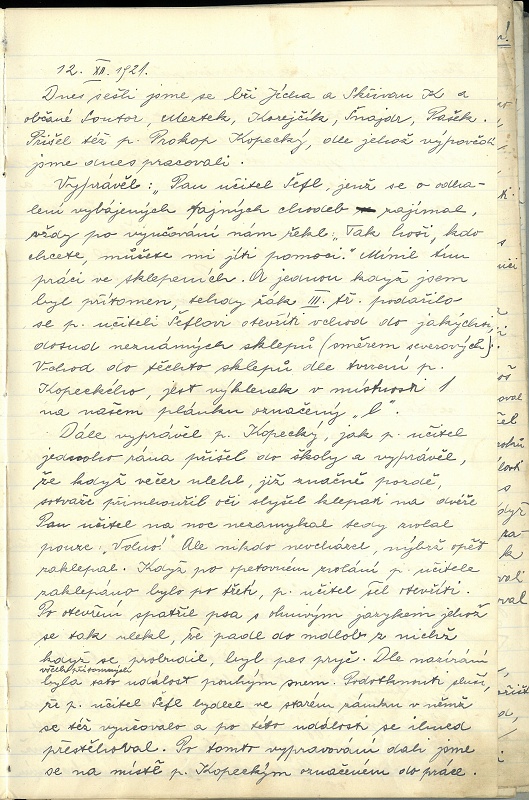 12. XII. 1921.
Dnes sešli jsme se bři Jícha a Skřivan K a
občané Soutor, Mertek, Korejčík, Šnajdr, Pašek.
Přišel též p. Prokop Kopecký, dle jehož výpovědi
jsme dnes pracovali.
Vyprávěl: „Pan učitel Šefl, jenž se o odha-
lení vybájených tajných chodeb zajímal,
vždy po vyučování nám řekl: „Tak hoši, kdo
chcete, můžete mi jíti pomoci." Mínil tím
práci ve sklepeních. A jednou když jsem
byl přítomen, tehdy žák III. tř. podařilo
se p. učiteli Šeflovi otevříti vchod do jakýchsi,
dosud neznámých sklepů (směrem severových).
Vchod do těchto sklepů dle tvrzení p.
Kopeckého, jest výklenek v místnosti 1
na našem plánku označený „l".
Dále vyprávěl p. Kopecký, jak p. učitel
jednoho rána přišel do školy a vyprávěl,
že když večer ulehl, již značně pozdě,
sotvaže přimhouřil oči slyšel klepati na dvéře
Pan učitel na noc nezamykal tedy zvolal
pouze „Volno!" Ale nikdo nevcházel, nýbrž opět
zaklepal. Když po opětovném zvolání p. učitele
zaklepáno bylo po třetí, p. učitel šel otevříti.
Po otevření spatřil psa s ohnivým jazykem jehož
se tak ulekl, že padl do mdlob z nichž
když se probudil, byl pes pryč. Dle nazírání
všech přítomných
byla tato událost pouhým snem. Podotknouti sluší,
že p. učitel Šefl bydlel ve starém zámku v němž
se též vyučovalo a po této události se ihned
přestěhoval. Po tomto vypravování dali jsme
se na místě p. Kopeckým označeném do práce.